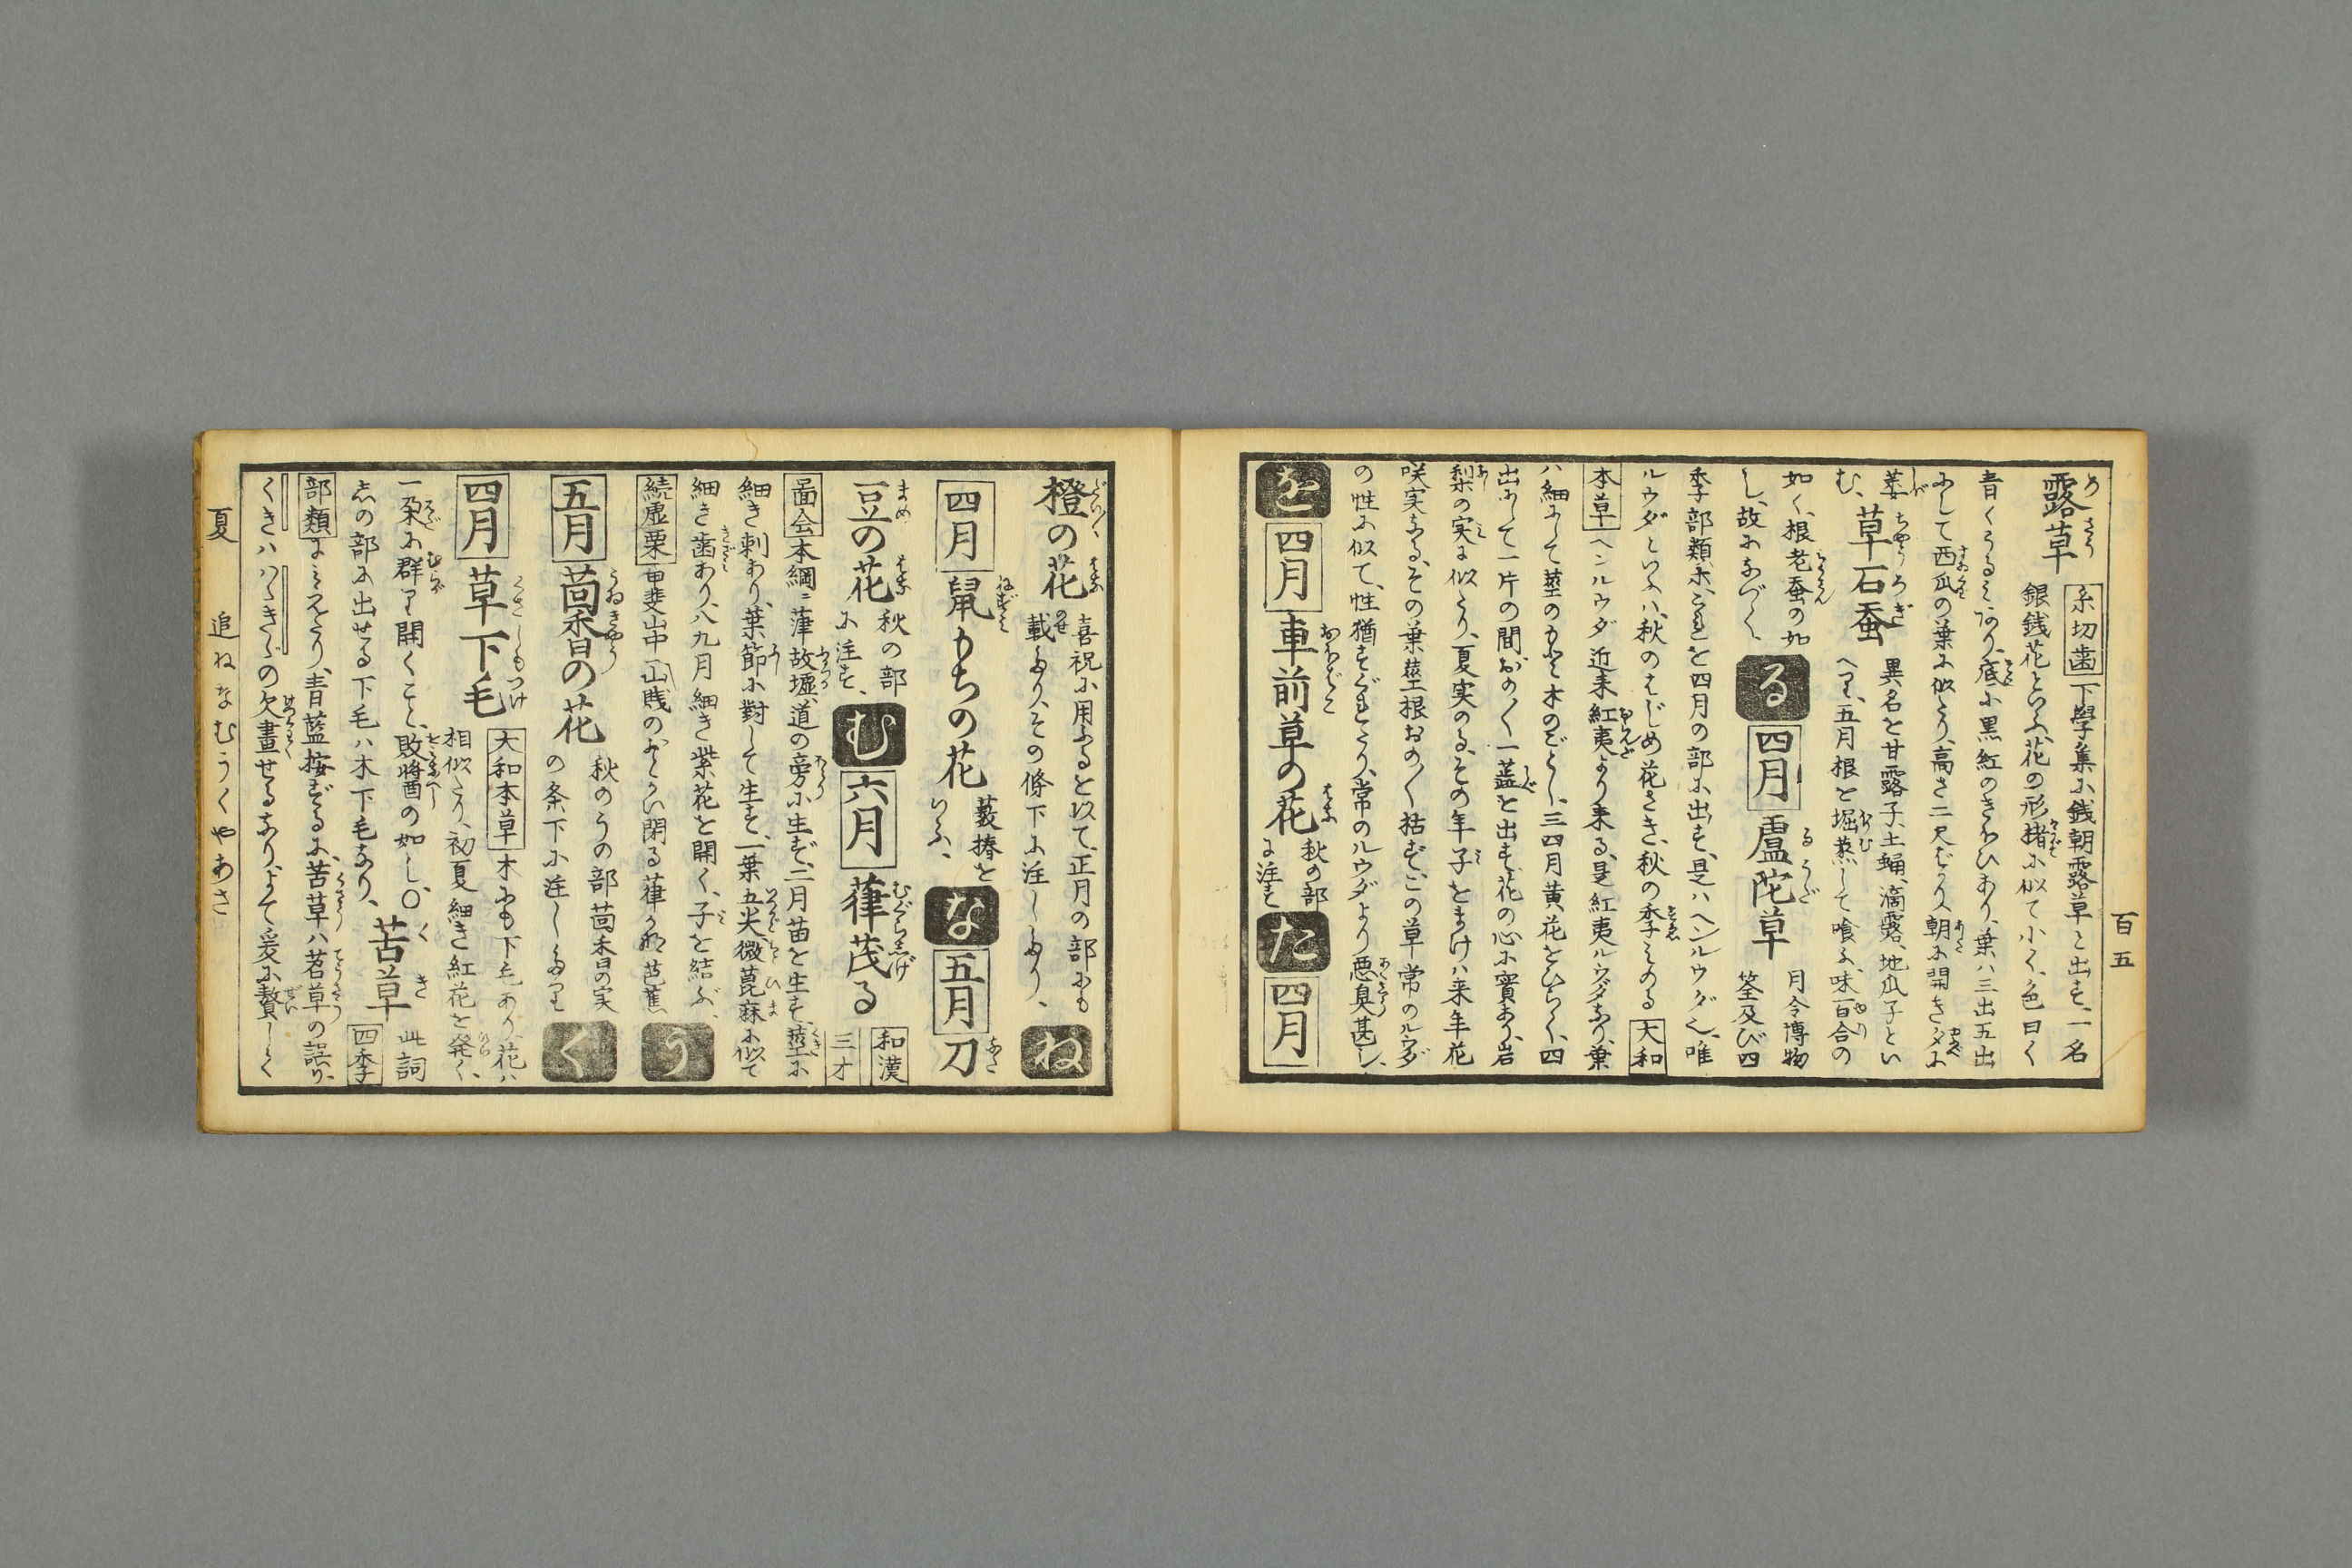 百五
露草
糸切歯 下學集に銭朝露草と出す、一名
銀銭花といふ、花の形
に似て小く、色白く
青くうるみあり、底に黒紅のきわひあり、葉ハ三出五出
にして西瓜の葉に似たり、高さ二尺ばかり、朝に開き夕に
萎む、
草石蚕
異名を甘露子、土蛹、滴露、地瓜子とい
へり、五月根を堀蒸して喰ふ、味百合の
如く、根老蚕の如
し、故になづく、
る
四月
盧陀草
月令博物
筌及び四
季部類ホ、これを四月の部に出す、是ハヘンルウダ也、唯
ルウダといふハ、秋のはじめ花さき、秋の季にみのる 大和
本草 ヘンルウダ近来紅夷より来る、是紅夷ルウダなり、葉
ハ細にして莖のもと木のごとし、三四月黄花をひらく、四
出にして一片の間おの〱一蕋を出す、花の心に實あり、岩
梨の実に似たり、夏実のる、その年子をまけハ来年花
咲実なる、その葉莖根おの〱枯ず、この草常のルウダ
の性に似て、性猶すぐれたり、常のルウダより悪臭甚シ、
を
四月
車前草の花
秋の部
に注す
た
四月
橙の花
喜祝に用ふるを以て、正月の部にも
載たり、その條下に注したり、
ね
四月
鼠もちの花
蔜椿を
いふ、
な
五月
刀
豆の花
秋の部
に注す、
む
六月
葎茂る
和漢
三才
圖会 本綱ニ葎故墟道の旁に生ず、二月苗を生す、莖に
細き刺あり、葉節に對して生す、一葉五尖微蓖麻に似て
細き歯あり、八九月細き紫花を開く、子を結ぶ、
う
続虚栗 甲斐山中 山賎のおとがい閉る葎かな 芭蕉
五月
茴香の花
秋のうの部茴香の実
の条下に注したり
く
四月
草下毛
大和本草 木にも下毛あり、花ハ
相似たり、初夏細き紅花を発く、
一朶に群り開くこと、敗醤の如し、〇
しの部に出せる下毛ハ木下毛なり、
苦草
此詞
四季
部類にみえたり、青藍按ずるに、苦草ハ苕草の誤り、
くきハはゝきゞの欠畫せるなり、よて爰に贅しく
夏 追ねなむうくやあさ